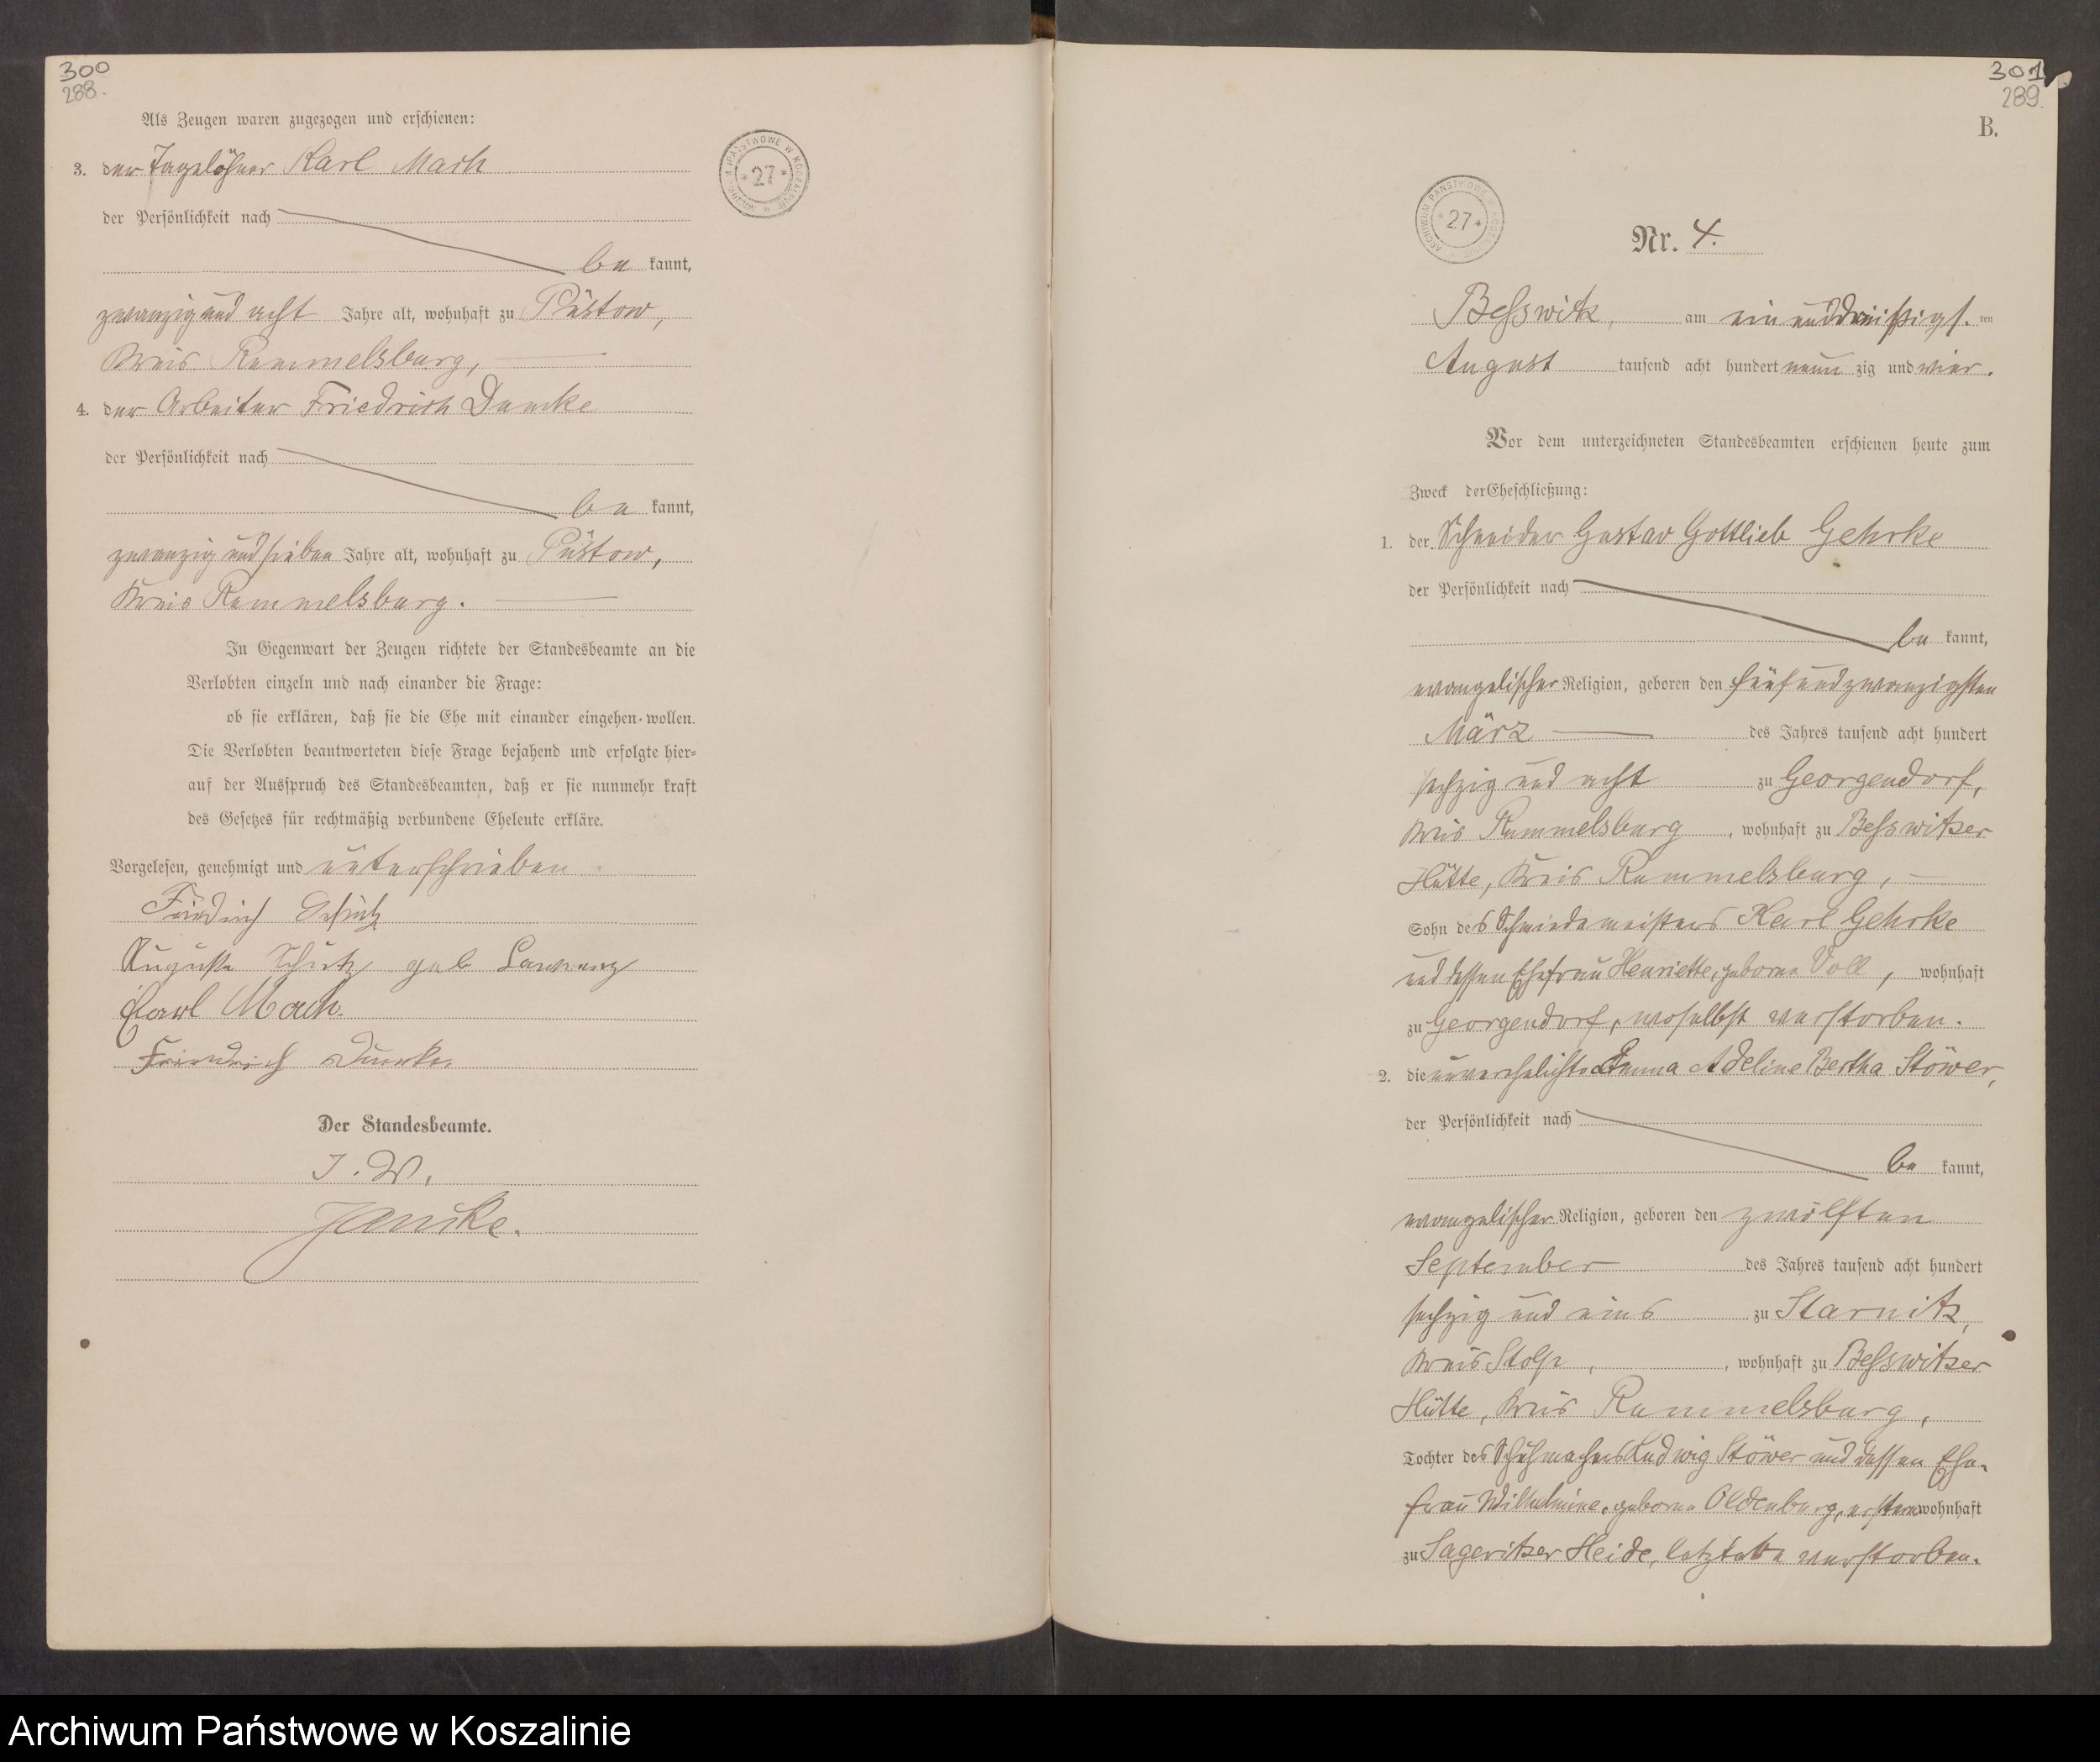 300
288.
Als Zeugen waren zugezogen und erschienen:
3. der Tagelöhner Karl Mach
der Persönlichkeit nach
be kannt,
zwanzig und acht Jahre alt, wohnhaft zu Püstow,
Kreis Rummelsburg,
4. der Arbeiter Friedrich Dumke
der Persönlichkeit nach
be kannt,
zwanzig und sieben Jahre alt, wohnhaft zu Püstow,
Kreis Rummelsburg.
In Gegenwart der Zeugen richtete der Standesbeamte an die
Verlobten einzeln und nach einander die Frage:
ob sie erklären, daß sie die Ehe mit einander eingehen wollen.
Die Verlobten beantworteten diese Frage bejahend und erfolgte hier-
auf der Ausspruch des Standesbeamten, daß er sie nunmehr kraft
des Gesetzes für rechtmäßig verbundene Eheleute erkläre.
Vorgelesen, genehmigt und unterschrieben
Friedrich Schütz
Auguste Schütz geb
Carl Mach.
Friedrich Dumke.
Der Standesbeamte.
J. V.
Janike.
ARCHIWUM PAŃSTWOWE W KOSZALINIE
* 27 *
301
289.
B.
ARCHIWUM PAŃSTWOWE W KOSZALINIE
* 27 *
Nr. 4.
Beßwitz, am ein und dreißigs. ten
August tausend acht hundert neun zig und vier.
Vor dem unterzeichneten Standesbeamten erschienen heute zum
Zweck der Eheschließung:
1. der Schneider Gustav Gottlieb Gehrke
der Persönlichkeit nach
be kannt,
evangelischer Religion, geboren den fünf und zwanzigsten
März des Jahres tausend acht hundert
sechzig und acht zu Georgendorf,
Kreis Rummelsburg, wohnhaft zu Beßwitzer
Hütte, Kreis Rummelsburg,
Sohn des Schmiedemeisters Karl Gehrke
und dessen Ehefrau Henriette, geborne Voll, wohnhaft
zu Georgendorf, woselbst verstorben.
2. die unverehelichte Emma Adeline Bertha Stöwer,
der Persönlichkeit nach
be kannt,
evangelischer Religion, geboren den zwölften
September des Jahres tausend acht hundert
sechzig und eins zu Starnitz,
Kreis Stolp, wohnhaft zu Beßwitzer
Hütte, Kreis Rummelsburg,
Tochter des Schuhmachers Ludwig Stöwer und dessen Ehe-
frau Wilhelmine, geborne Oldenburg, ersterer wohnhaft
zu Sageritzer Heide, letztere verstorben.
Archiwum Państwowe w Koszalinie